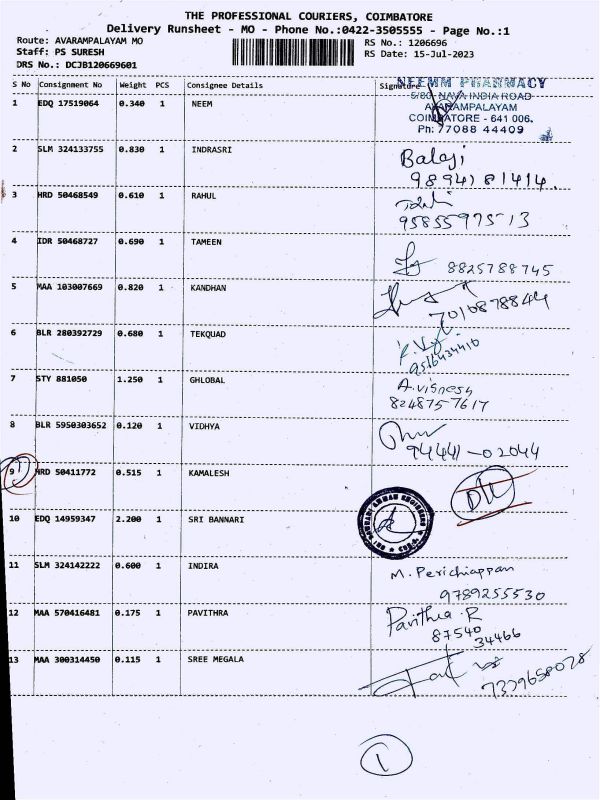 THE PROFESSIONAL COURIERS, COIMBATORE
Delivery Runsheet - MO - Phone No.:0422-3505555 - Page No.:1
Route: AVARAMPALAYAM MO
RS No.: 1206696
Staff: PS SURESH
RS Date: 15-Jul-2023
DRS No.: DCJB120669601
S No Consignment No Weight PCS Consignee Details Signature
NEEMM PHARMACY
5/80, NAVA INDIA ROAD
AVARAMPALAYAM
COIMBATORE - 641 006.
Ph: 77088 44409
1 EDQ 17519064 0.340 1 NEEM
2 SLM 324133755 0.830 1 INDRASRI Balaji
9894181414
3 HRD 50468549 0.610 1 RAHUL
9585597513
4 IDR 50468727 0.690 1 TAMEEN
8825788745
5 MAA 103007669 0.820 1 KANDHAN
7010878844
6 BLR 280392729 0.680 1 TEKQUAD
9516434416
7 STY 881050 1.250 1 GHLOBAL A.Visnesh
8248757617
8 BLR 5950303652 0.120 1 VIDHYA
94441-02044
9 HRD 50411772 0.515 1 KAMALESH
10 EDQ 14959347 2.200 1 SRI BANNARI
11 SLM 324142222 0.600 1 INDIRA M. Perichiappan
9789255530
12 MAA 570416481 0.175 1 PAVITHRA Pavithra.R
87540
34466
13 MAA 300314450 0.115 1 SREE MEGALA
7339658028
1